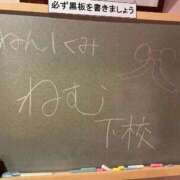 必ず黒板を書きましょう
ねんしくみ
ねむ
下校